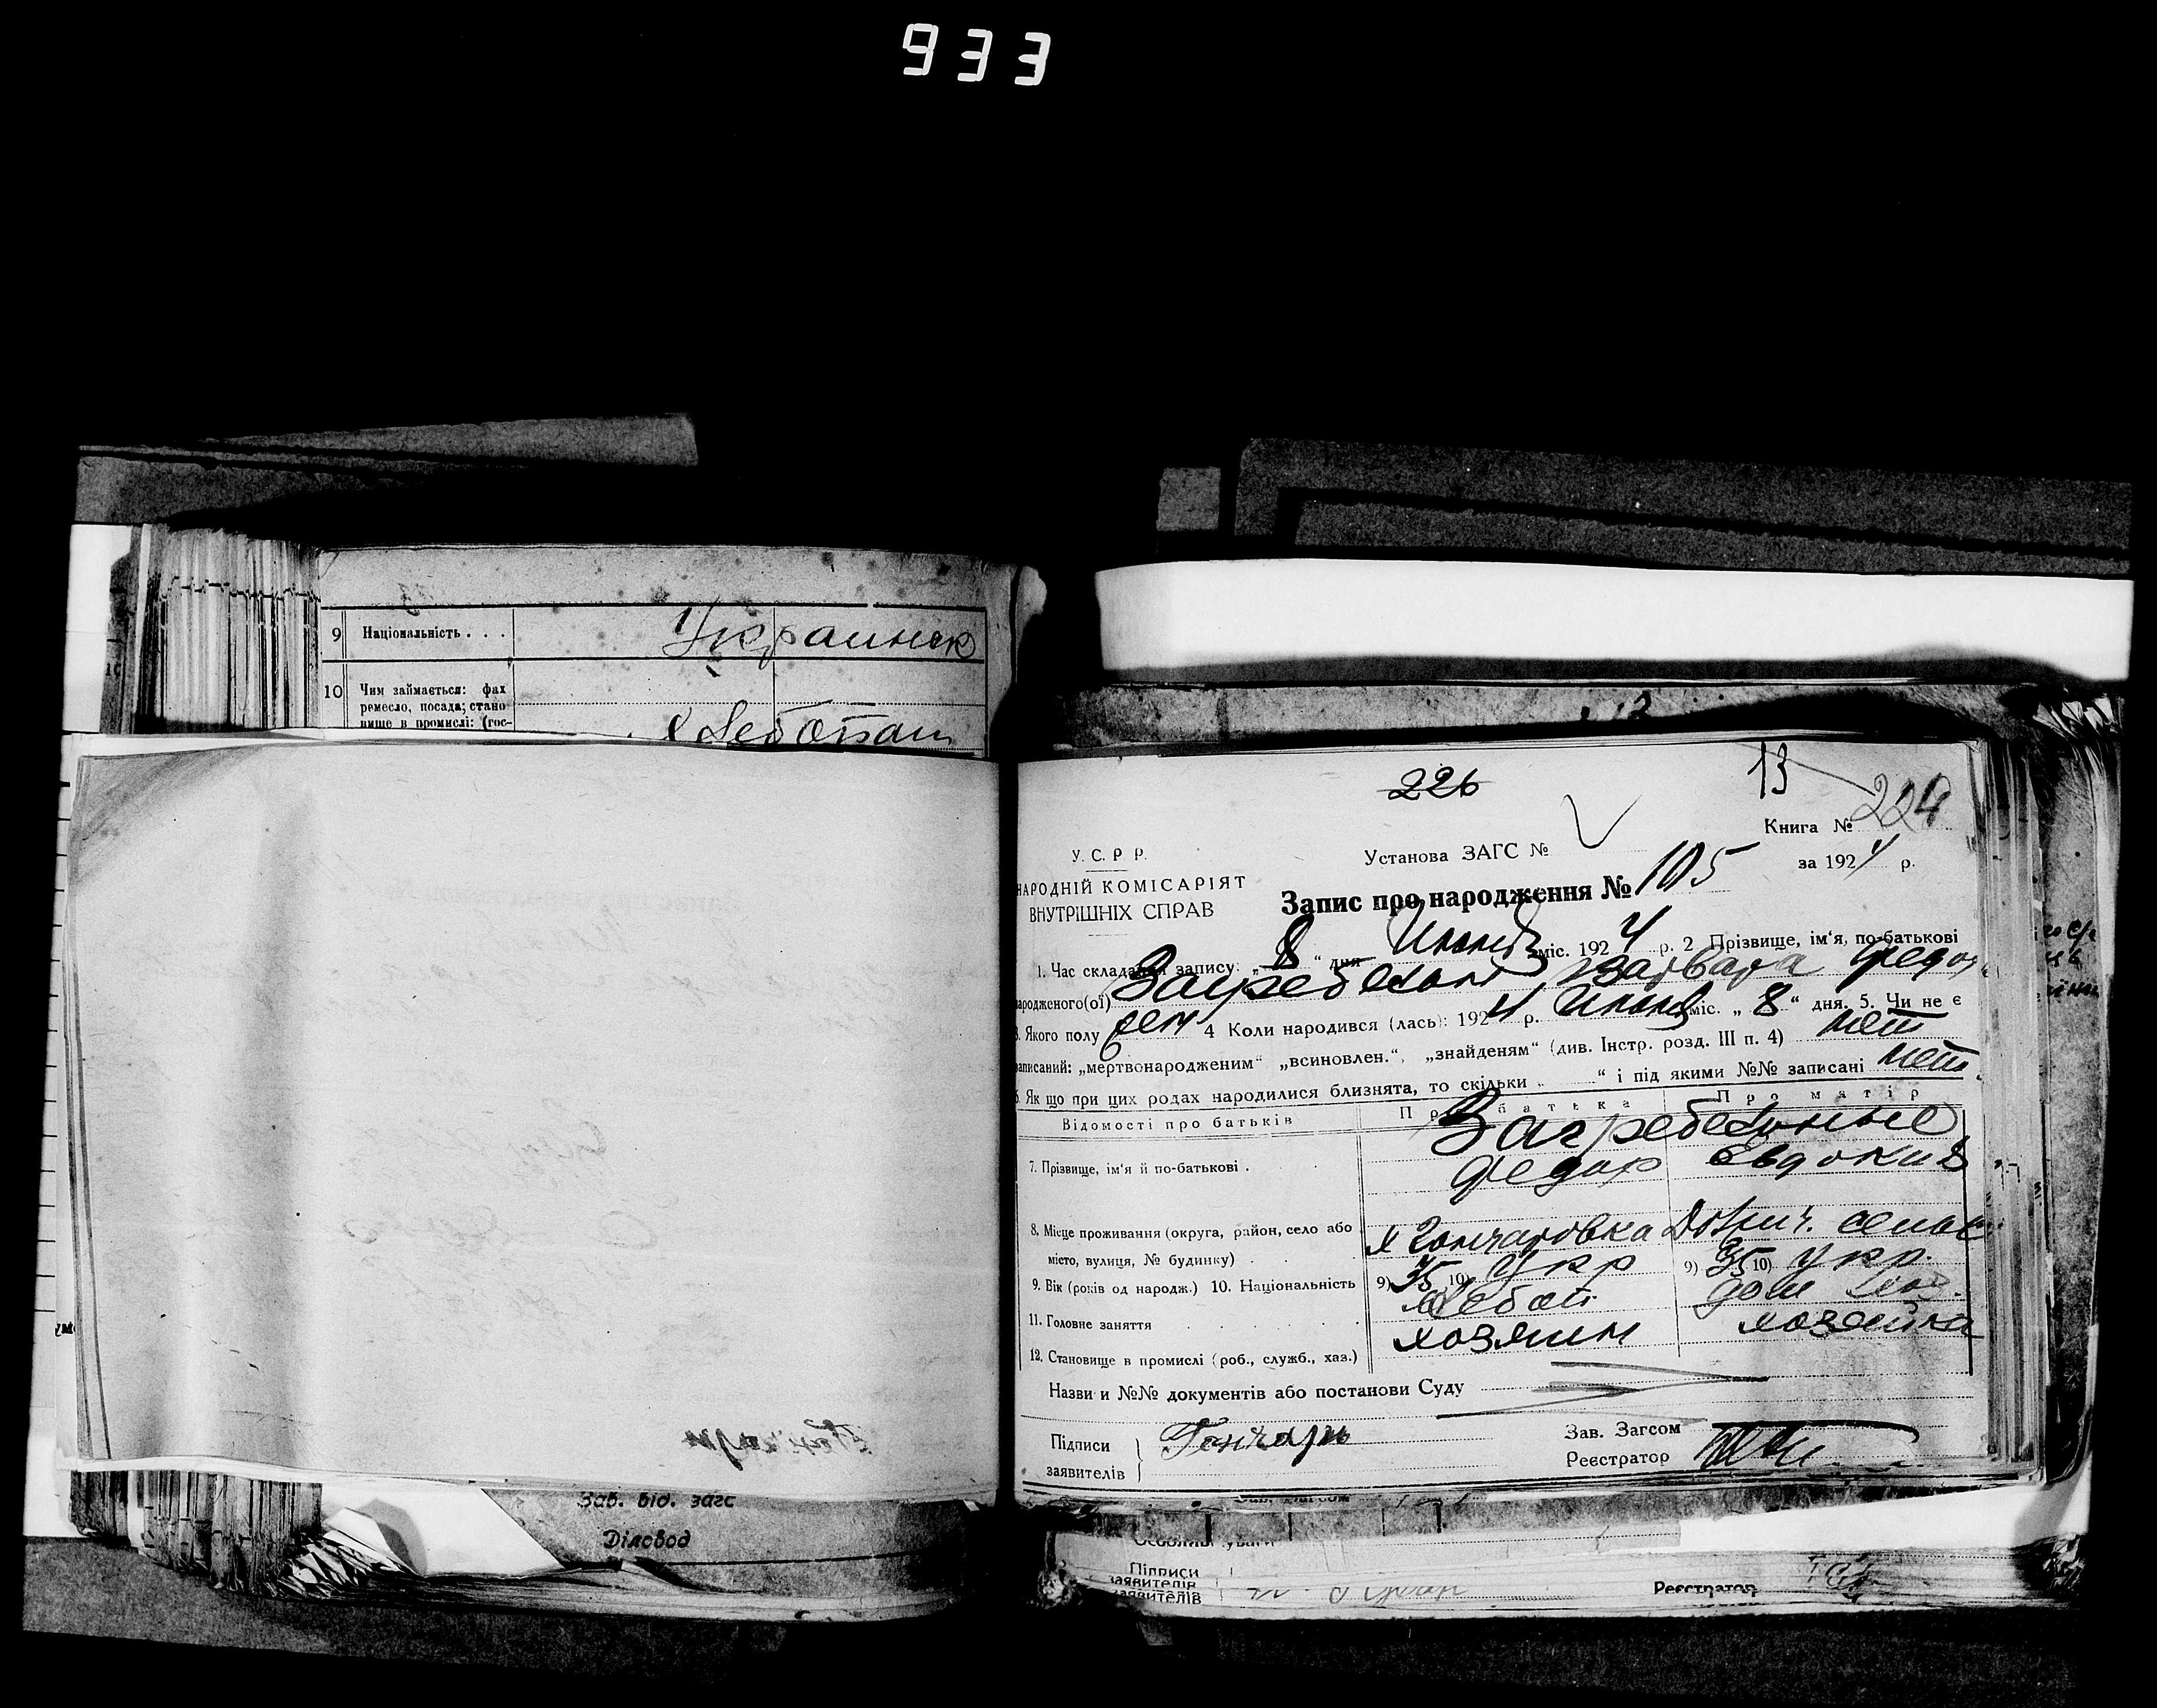 933
9 Національність . . . Украинск
10 Чим займається: фах
ремесло, посада, стано
вище в промислі: (гос-
Хлебопаш
226
13
224
Книга №
У. С. Р. Р.
Установа ЗАГС №
за 1924 р.
НАРОДНІЙ КОМІСАРІЯТ
ВНУТРІШНІХ СПРАВ
Запис про народження № 105
1. Час складання запису: „8“ дня Июня міс. 1924 р. 2 Прізвище, ім‘я, по-батькові
народженого(ої) Загребельн Варвара Федор
3. Якого полу жен 4 Коли народився (лась): 1924 р. Июня міс. „8“ дня. 5. Чи не є
записаний: „мертвонародженим“ „всиновлен.“, „знайденям“ (див. Інстр. розд. III п. 4) нет
6. Як що при цих родах народилися близнята, то скільки „ “ і під якими №№ записані нет
Відомості про батьків Про батька Про матір
Загребельные
7. Прізвище, ім‘я й по-батькові . Федор Евдокия
8. Місце проживання (округа, район, село або
місто, вулиця, № будинку) . х Гончаровка
9. Вік (років од народж.) 10. Національність 9) 35 10) Укр 9) 35 10) укр.
11. Головне заняття Хлебоп дом хоз.
12. Становище в промислі (роб., служб., хаз.) хозяин хозяйка
Назви и №№ документів або постанови Суду
Підписи
заявителів
Гончарь
Зав. Загсом
Реєстратор
Зав. від. загс
Діловод
Підписи
заявителів
заявителів
Реєстратор